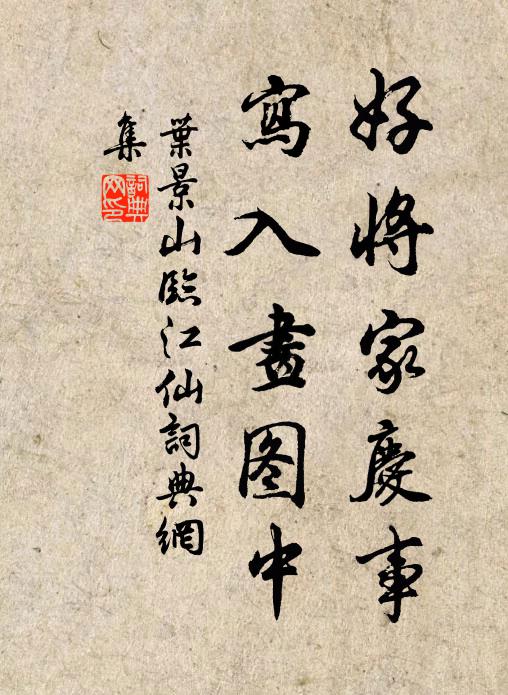 好將家慶事
寫入畫图中
葉景山臨江仙詞典網
集
詞典网印